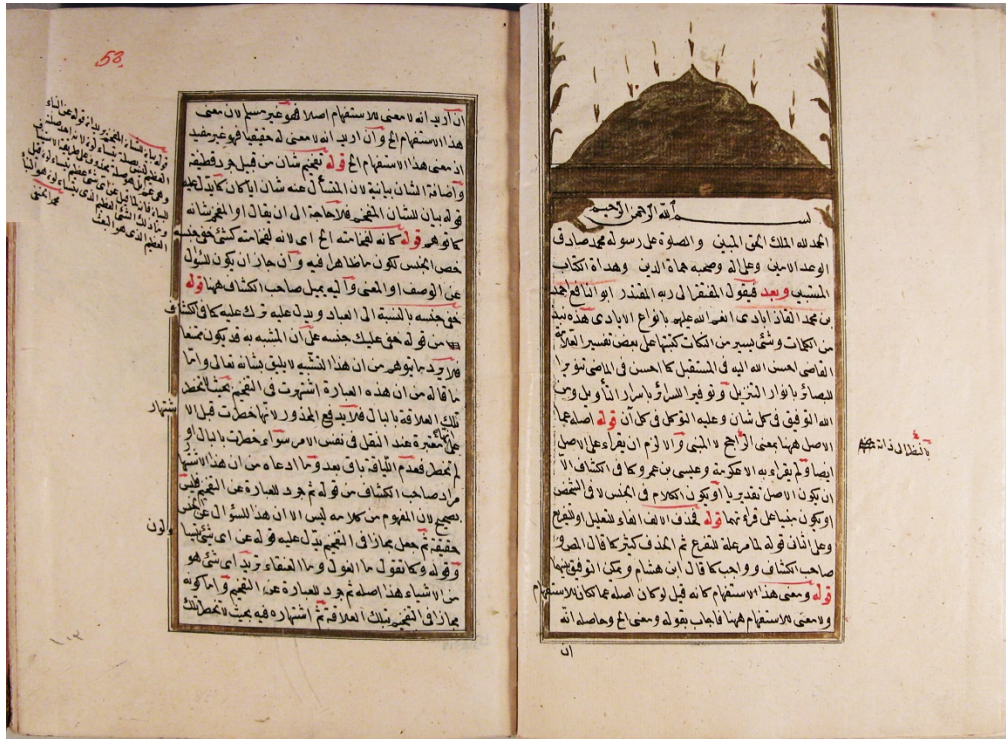 بسم الله الرحمن الرحيم
الحمد لله الملك الحق المبين والصلوة على رسوله محمد صادق
الوعد الامين وعلى اله وصحبه حماة الدين وهداة اكتاب
المستبين وبعد فيقول المفتقر الى ربه المقتدر ابو النافع احمد
بن محمد القازابادى انعم الله عليهم بانواع الايادى هذه نبذ
من الكلمات وشئ يسير من النكات كتبتها على بعض تفسير العلامة
القاضى احسن الله اليه فى المستقبل كما احسن فى الماضى تنويرا
للبصائر بانوار التنزيل وتوفيرا للسرائر باسرار التأويل ومن
الله التوفيق فى كل شان وعليه التوكل فى كل آن قوله اصله عما
الاصل ههنا بمعنى الراجح لا المبنى والا لزم ان يقراء على الاصل
ايضا ولم يقراء به الا عكرمة وعيسى بن عمر وكما فى اكتشاف الا
ان يكون الاصل تقديريا او يكون الكلام فى الجنس لا فى الشخص
او يكون مبنيا على قرائتهما قوله فحذف الالف الفاء للتعليل او للتفريع
وعلى الثانى قوله لما مر علة للتفرع ثم الحذف كثير كما قال المص و
صاحب اكشاف وواجب كما قال ابن هشام ويمكن التوفيق بينهما
قوله ومعنى هذا الاستفهام كانه قيل لو كان اصله عما كان للاستفهام
ولا معنى للاستفهام ههنا فاجاب بقوله ومعنى الخ وحاصله انه
ان
53
ان اريد انه لا معنى للاستفهام اصلا فهو غير مسلم لان معنى
هذا الاستفهام الخ وان اريد انه لا معنى له حقيقيا فهو غير مفيد
اذ معنى هذا الاستفهام الخ قوله تفخيم شان من قبيل جرد قطيفة
واضافة الشان بيانية لان المتسأل عنه شان ايا كان كما يدل عليه
قوله بيان للشان المفخم فلا حاجة الى ان يقال او المفخم شانه
كما توهم قوله كانه لفخامته الخ اى لانه لفخامته كشئ خفى جنسه
خص الجنس لكون ما ظاهرا فيه وان جاز ان يكون للسؤل
عن الوصف او المعنى واليه يميل صاحب اكشاف ههنا قوله
خفى جنسه بالنسبة الى العباد ويدل عليه ترك عليه كما فى اكشاف
من قوله خفى عليك جنسه على ان المشبه به قد يكون ممتنعا
فلا يرد ما يوهم من ان هذا التشبيه لا يليق بشانه تعالى واما
ما قاله من ان هذه العبارة اشتهرت فى التفخيم بحيث لا تخطر
تلك العلاقة بالبال فلا يدفع المحذور لانها خطرت قبل الاشتهار
على انها معتبرة عند النقل فى نفس الامر سواء خطرت بالبال او
لم تخطر فعدم اللياقة باق بعد وما ادعاه من ان هذا الاستفهام
مراد صاحب اكشاف من قوله ثم جرد للعبارة عن التفخيم فليس
بصحيح لان المفهوم من كلامه ليس الا ان هذا للسؤال عن الجنس
حقيقة ثم جعل مجازا فى التفخيم يدل عليه قوله عن اى شئ
وقوله وكما تقول ما الغول وما العنقاء تريد اى شئ هو
من الاشياء هذا اصله ثم جرد للعبارة عن التفخيم واما كونه
مجازا فى التفخيم بتلك العلاقة ثم اشتهاره فيه بحيث لا تخطر تلك